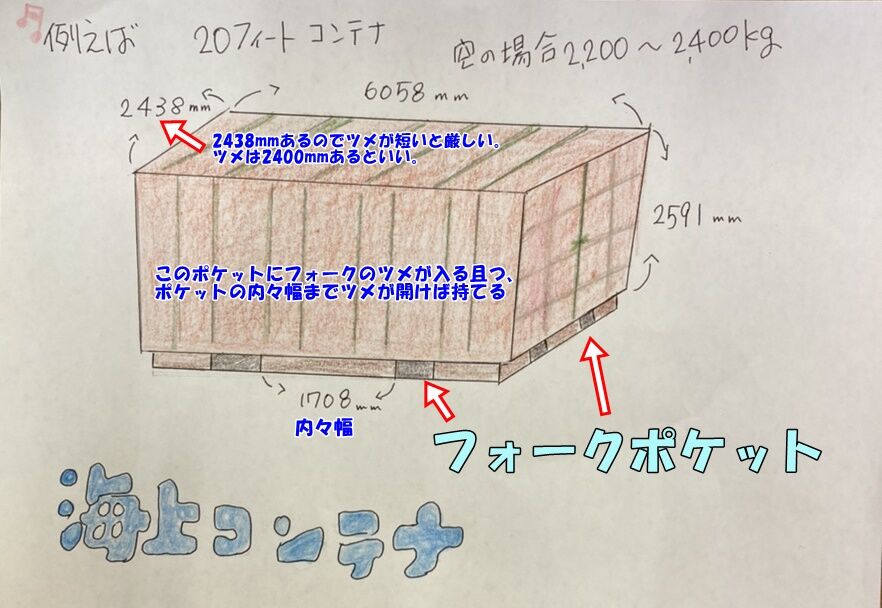 例えば 20フィート コンテナ
空の場合2,200～2,400kg
2438mm
6058mm
2438mmあるのでツメが短いと厳しい。
ツメは2400mmあるといい。
2591mm
このポケットにフォークのツメが入る且つ、
ポケットの内々幅までツメが開けば持てる
1708mm
内々幅
フォークポケット
海上コンテナ